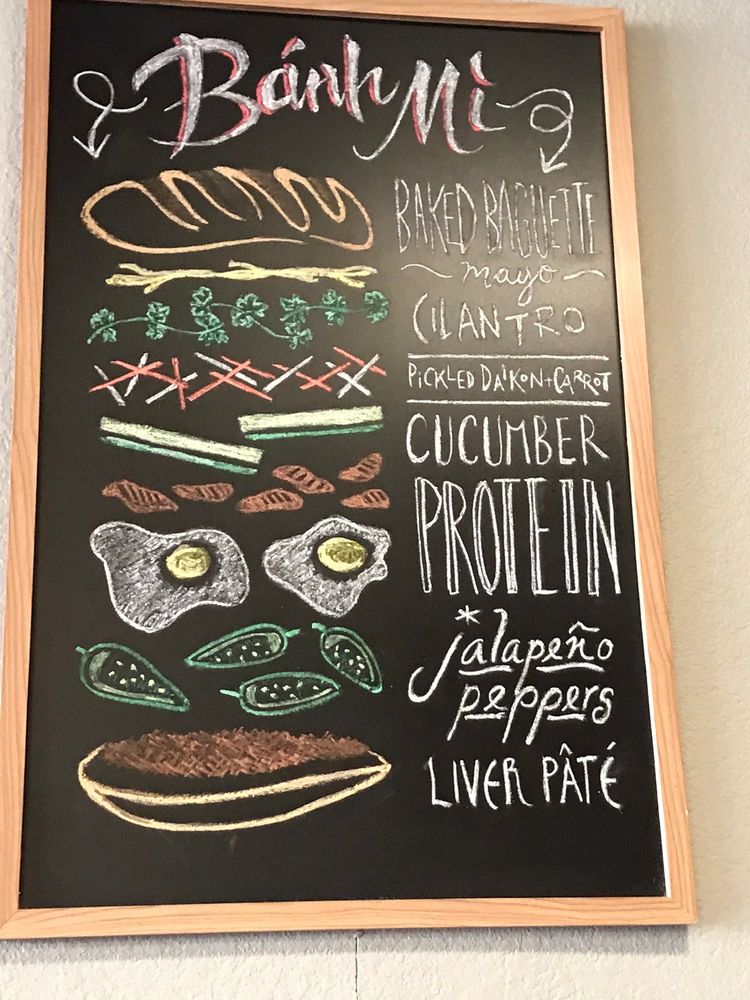 Bánh Mì
BAKED BAGUETTE
~ mayo ~
CILANTRO
PICKLED DAIKON + CARROT
CUCUMBER
PROTEIN
*jalapeño
peppers
LIVER PÂTÉ